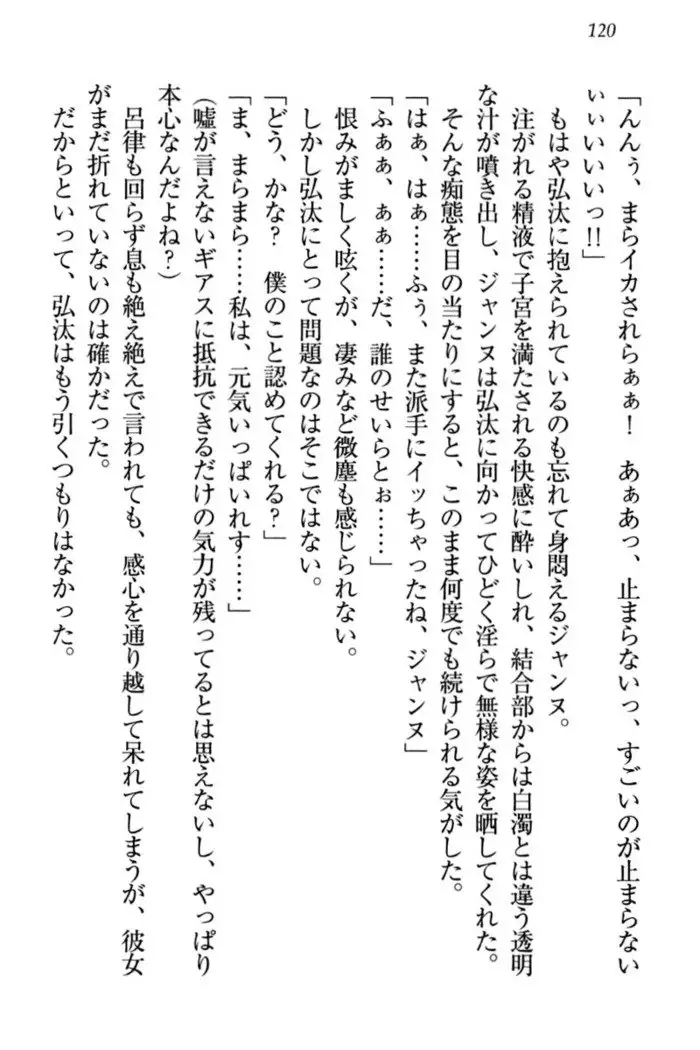 120
「んんぅ、まらイカされらぁぁ！　あぁあっ、止まらないっ、すごいのが止まらない
ぃぃいいいっ!!」
もはや弘汰に抱えられているのも忘れて身悶えるジャンヌ。
注がれる精液で子宮を満たされる快感に酔いしれ、結合部からは白濁とは違う透明
な汁が噴き出し、ジャンヌは弘汰に向かってひどく淫らで無様な姿を晒してくれた。
そんな痴態を目の当たりにすると、このまま何度でも続けられる気がした。
「はぁ、はぁ……ふぅ、また派手にイッちゃったね、ジャンヌ」
「ふぁぁ、ぁぁ……だ、誰のせいらとぉ……」
恨みがましく呟くが、凄みなど微塵も感じられない。
しかし弘汰にとって問題なのはそこではない。
「どう、かな？　僕のこと認めてくれる？」
「ま、まらまら……私は、元気いっぱいれす……」
(嘘が言えないギアスに抵抗できるだけの気力が残ってるとは思えないし、やっぱり
本心なんだよね？)
呂律も回らず息も絶え絶えで言われても、感心を通り越して呆れてしまうが、彼女
がまだ折れていないのは確かだった。
だからといって、弘汰はもう引くつもりはなかった。